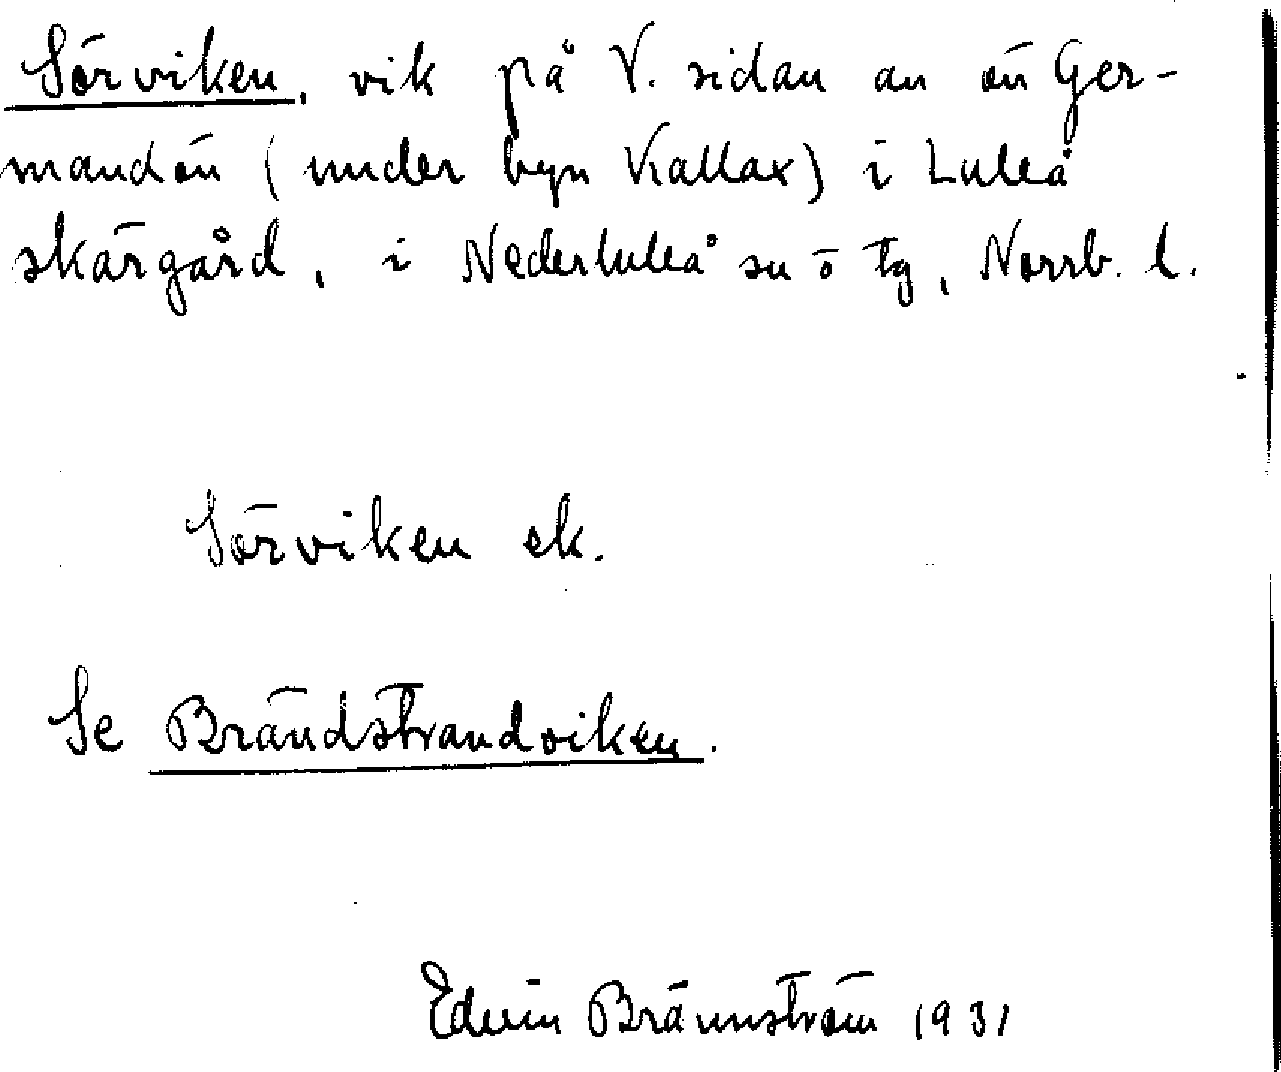 Sörviken, vik på V. sidan av ön Ger-
mandön (under byn Kallax) i Luleå
skärgård, i Nederluleå sn o tg, Norrb. l.
Sörviken ek.
Se Brändstrandviken.
Edvin Brännström 1931